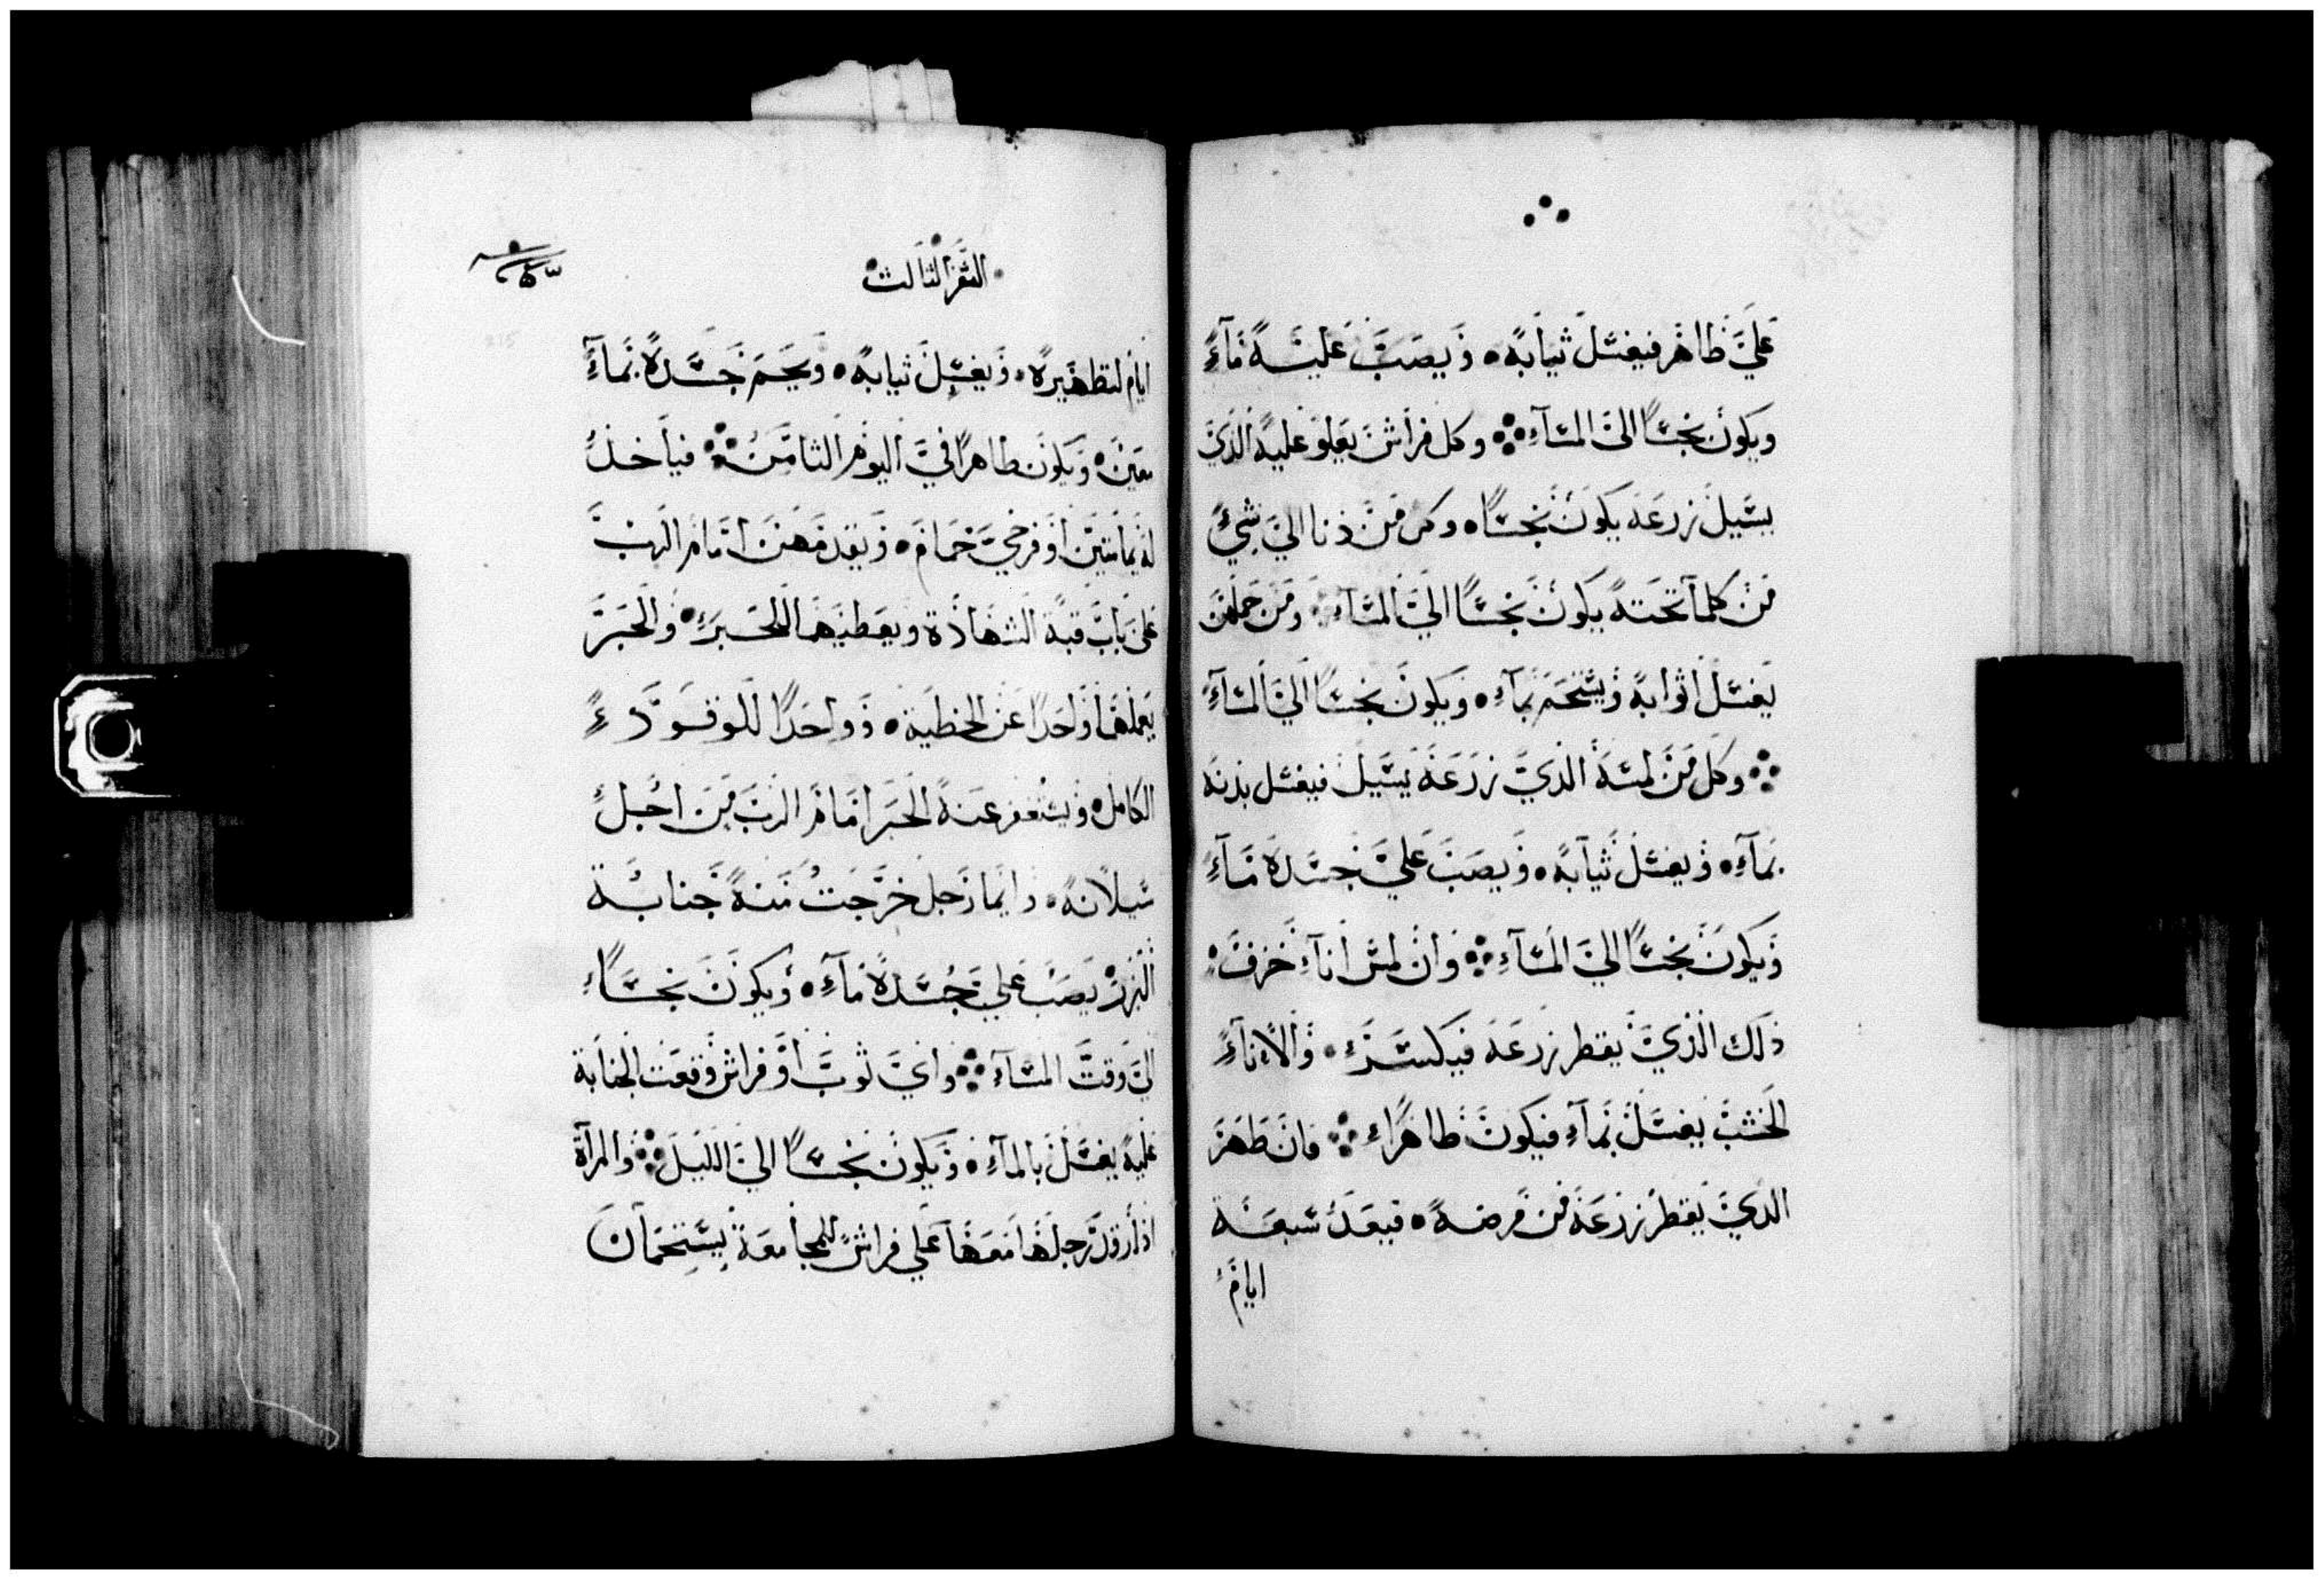 علي طاهر فيغسل ثيابه • ويصب عليه مآء
ويكون نجسًا الي المسآء ۞ وكل فراش يعلو عليه الذي
يسيل زرعه يكون نجسًا • وكل من دنا الي شيء
من كلما تحته يكون نجسًا الي المسآء ۞ ومن حملهن
يغسل اثوابه ويستحم بمآء • ويكون نجسًا الي المسآء
۞ وكل من لمسه الذي زرعه يسيل فيغسل بدنه
بمآء • ويغسل ثيابه • ويصب علي جسده مآء
ويكون نجسًا الي المسآء ۞ وان لمس انآء خزف •
ذلك الذي يقطر زرعه فيكسر • والانآء
الخشب يغسل بمآء فيكون طاهرًا ۞ فان طهر
الذي يقطر زرعه من مرضه • فيعد سبعة
ايام
السفر الثالث
ايام لتطهيره • ويغسل ثيابه • ويحم جسده بمآء
معين • ويكون طاهرًا في اليوم الثامن ۞ فياخذ
له يمامتين او فرخي حمام • ويقدمهن امام الرب
علي باب قبة الشهادة ويعطيهما للحبر • والحبر
يعملهما واحدًا عن الخطية • وواحدًا للوقود
الكامل • ويستغفر عنه الحبر امام الرب من اجل
سيلانه • وايما رجل خرجت منه جنابة
البزر يصب علي جسده مآء • ويكون نجسًا
الي وقت المسآء ۞ واي ثوب او فراش وقعت الجنابة
عليه يغسل بالمآء • ويكون نجسًا الي الليل ۞ والمرآة
اذا رقد رجلها معها علي فراش للمجامعة يستحمان